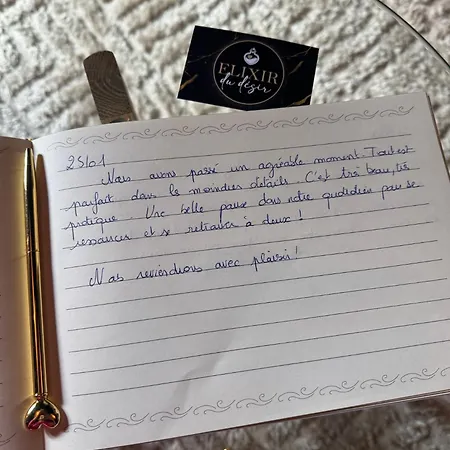 ELIXIR
du désir
25/01
Nous avons passé un agréable moment. Tout est
parfait dans les moindres détails. C'est très beau, très
pratique. Une belle pause dans notre quotidien pour se
ressourcer et se retrouver à deux !
Nous reviendrons avec plaisir !